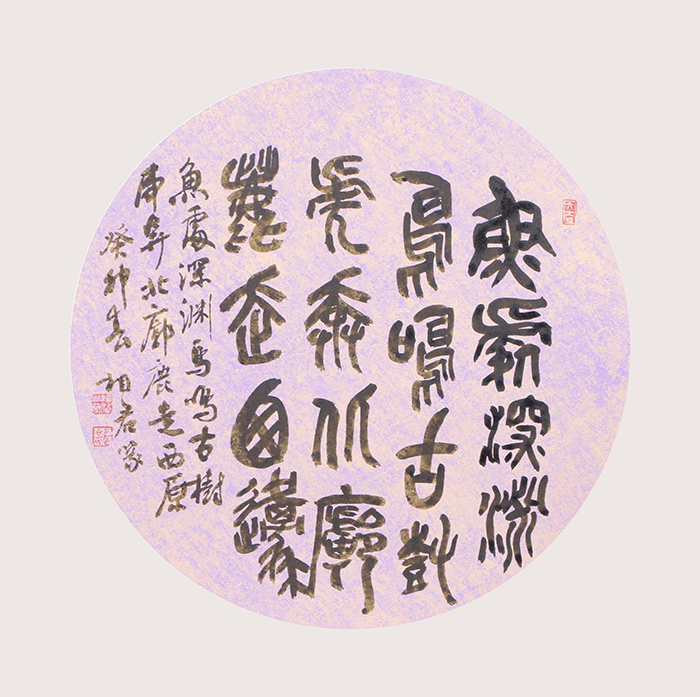 魚處深淵
鳥鳴古樹
虎奔北廓
鹿走西原
魚處深淵鳥鳴古樹
虎奔北廓鹿走西原
癸卯春 君篆